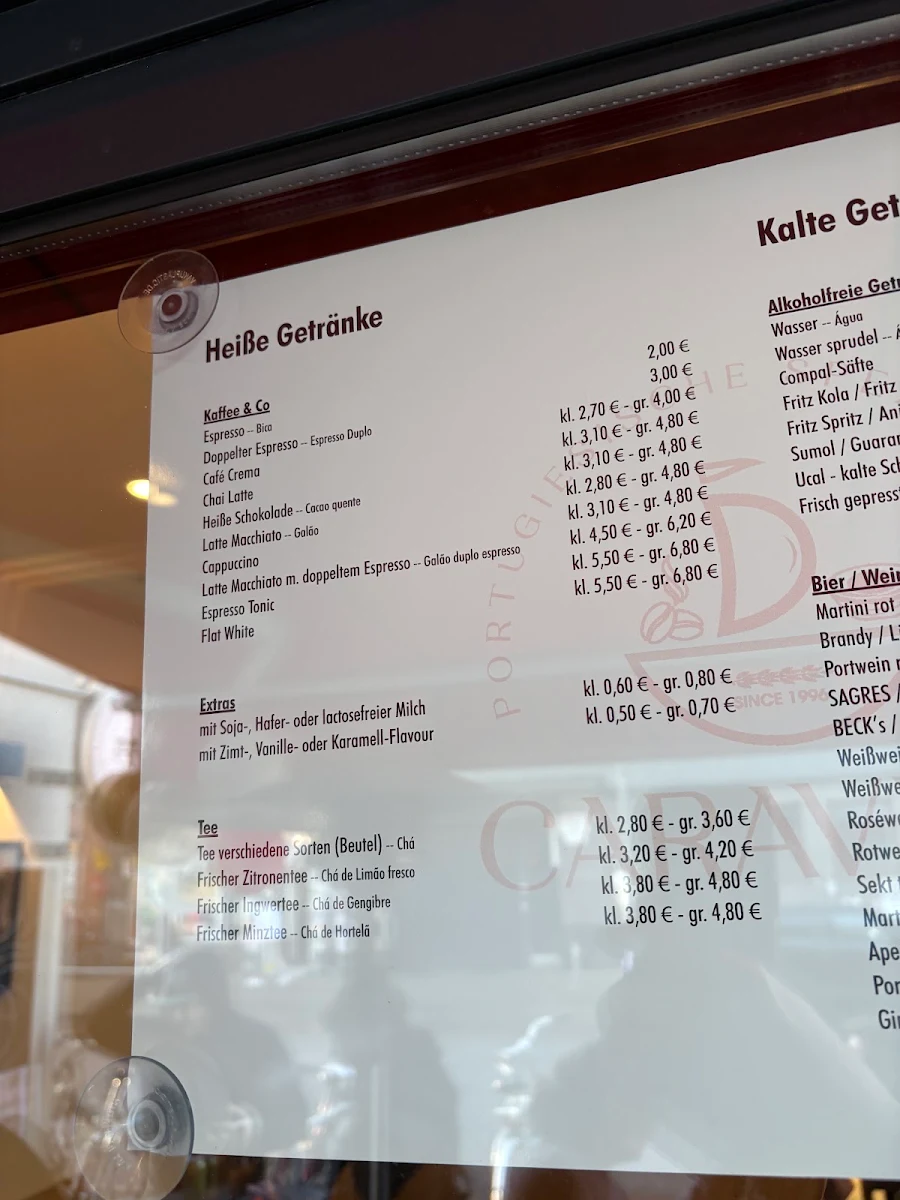 Heiße Getränke
Kaffee & Co
Espresso -- Bica 2,00 €
Doppelter Espresso -- Espresso Duplo 3,00 €
Café Crema kl. 2,70 € - gr. 4,00 €
Chai Latte kl. 3,10 € - gr. 4,80 €
Heiße Schokolade -- Cacao quente kl. 3,10 € - gr. 4,80 €
Latte Macchiato -- Galão kl. 2,80 € - gr. 4,80 €
Cappuccino kl. 3,10 € - gr. 4,80 €
Latte Macchiato m. doppeltem Espresso -- Galão duplo espresso kl. 4,50 € - gr. 6,20 €
Espresso Tonic kl. 5,50 € - gr. 6,80 €
Flat White kl. 5,50 € - gr. 6,80 €
Extras
mit Soja-, Hafer- oder lactosefreier Milch kl. 0,60 € - gr. 0,80 €
mit Zimt-, Vanille- oder Karamell-Flavour kl. 0,50 € - gr. 0,70 €
Tee
Tee verschiedene Sorten (Beutel) -- Chá kl. 2,80 € - gr. 3,60 €
Frischer Zitronentee -- Chá de Limão fresco kl. 3,20 € - gr. 4,20 €
Frischer Ingwertee -- Chá de Gengibre kl. 3,80 € - gr. 4,80 €
Frischer Minztee -- Chá de Hortelã kl. 3,80 € - gr. 4,80 €
PORTUGIESISCHE
SINCE 1996
CARAV
Kalte Get
Alkoholfreie Getr
Wasser -- Água
Wasser sprudel --
Compal-Säfte
Fritz Kola / Fritz
Fritz Spritz / An
Sumol / Guarar
Ucal - kalte Sch
Frisch gepress
Bier / Wein
Martini rot
Brandy / L
Portwein
SAGRES /
BECK's /
Weißwei
Weißwe
Roséwe
Rotwe
Sekt
Mart
Ape
Por
Gi